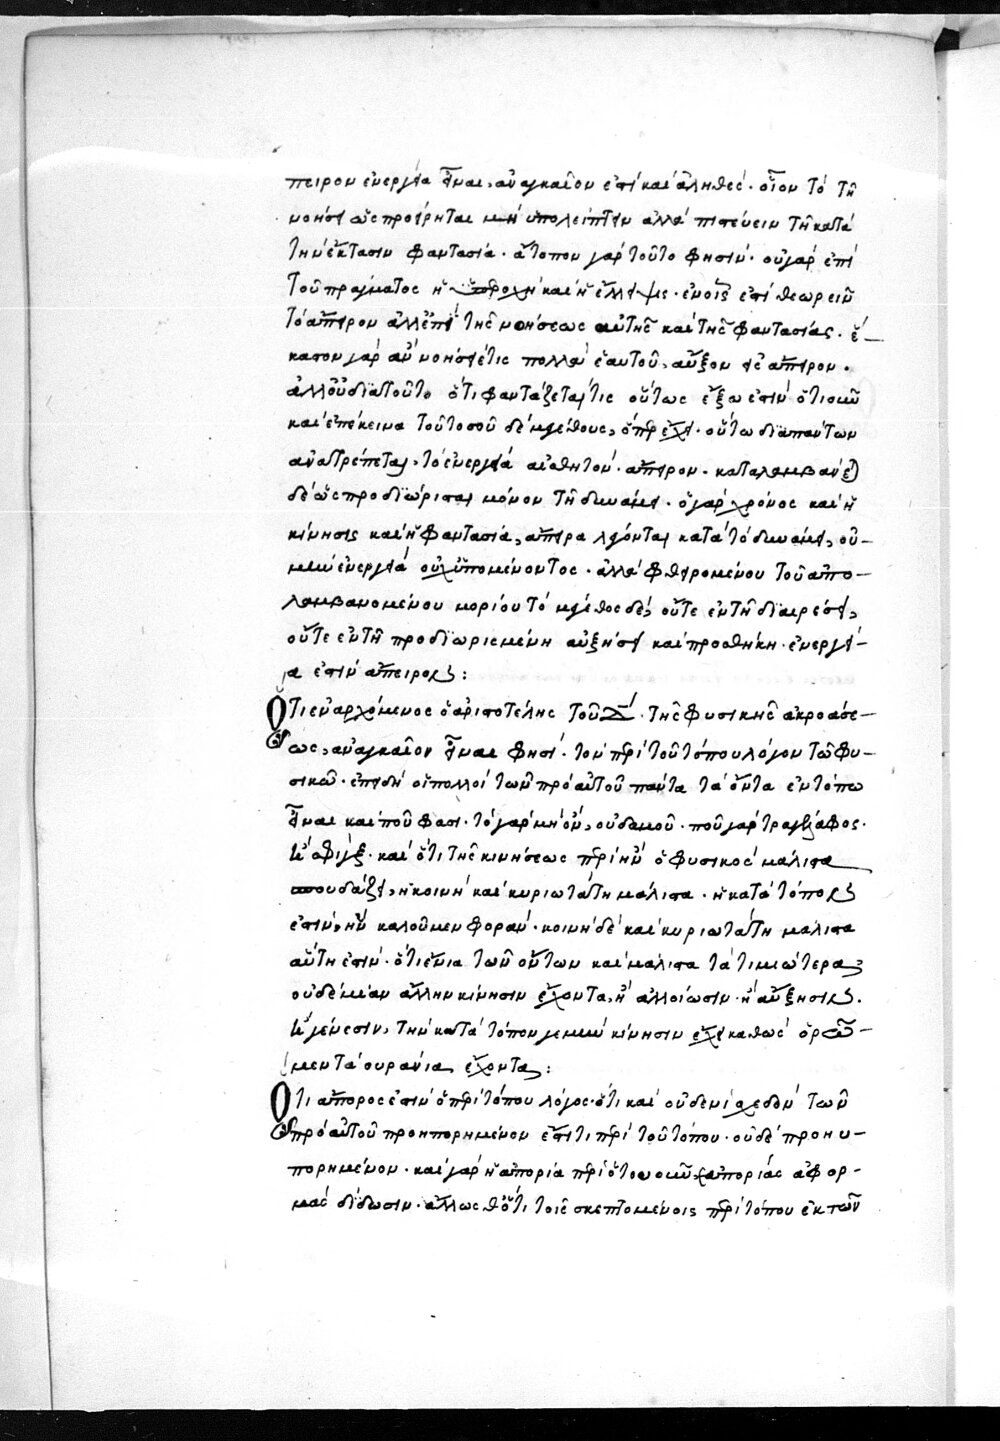 πειρον ἐνεργία εἶναι, ἀναγκαῖον ἐστὶ καὶ ἀληθές· οἷον τὸ τῆ
νοήσει ὡς προείρηται μὴ ὑπολείπειν ἀλλὰ πιστεύειν τῆ κατὰ
τὴν ἔκτασιν φαντασία· ἄτοπον γὰρ τοῦτο φησίν· οὐ γὰρ ἐπὶ
τοῦ πράγματος ἡ ὑπεροχὴ καὶ ἡ ἔλλειψις· ἐν οἷς ἐστὶ θεωρεῖν
τὸ ἄπειρον ἀλλ' ἐπὶ τῆς νοήσεως αὐτῆς καὶ τῆς φαντασίας· ἕ-
καστον γὰρ ἂν νοήσειέ τις πολλὰ ἑαυτοῦ, αὖξον εἰς ἄπειρον·
ἀλλ' οὐ διὰ τοῦτο ὅτι φαντάζεται τις οὕτως ἔξω ἐστίν ὁτιοῦν
καὶ ἐπέκεινα τοῦ τοσοῦδε μεγέθους, ὅπερ ἔχει· οὕτω διαπάντων
ἀνατρέπεται, τὸ ἐνεργεία αἰσθητὸν ἄπειρον· καταλαμβάνε)
δὲ ὡς προδιώρισται μόνον τῆ δυνάμει· ὁ γὰρ χρόνος καὶ ἡ
κίνησις καὶ ἡ φαντασία, ἄπειρα λέγονται κατὰ τὸ δυνάμει, οὐ-
μὴν ἐνεργεία οὐχ' ὑπομένοντος· ἀλλὰ φθειρομένου τοῦ ἀπο-
λαμβανομένου μορίου τὸ μέγεθος δὲ, οὔτε ἐν τῆ διαιρέσει,
οὔτε ἐν τῆ προδιωρισμένη αὐξήσει καὶ προσθήκη· ἐνεργεί-
α ἐστὶν ἄπειρος:
Ὅτι ἐναρχόμενος ὁ ἀριστοτέλης τοῦ Δ΄· τῆς φυσικῆς ἀκροάσε-
ως, ἀναγκαῖον εἶναι φησί· τὸν περὶ τοῦ τόπου λόγον τῶ φυ-
σικῶ· ἐπειδὴ οἱ πολλοὶ τῶν πρὸ αὐτοῦ πάντα τὰ ὄντα ἐν τόπω
εἶναι καὶ ποῦ φασι· τὸ γὰρ μὴ ὄν, οὐδαμοῦ· ποῦ γὰρ τραγέλαφος·
ἢ σφίγξ· καὶ ὅτι τῆς κινήσεως περὶ ἣν ὁ φυσικὸς μάλιστα
σπουδάζει, ἡ κοινὴ καὶ κυριωτάτη μάλιστα· ἡ κατὰ τόπον
ἐστίν, ἣν καλοῦμεν φοράν· κοινὴ δὲ καὶ κυριωτάτη μάλιστα
αὕτη ἐστίν· ὅτι ἔνια τῶν ὄντων καὶ μάλιστα τὰ τιμιώτερα
οὐδεμίαν ἄλλην κίνησιν ἔχοντα, ἢ ἀλλοίωσιν· ἢ αὔξησιν·
ἢ γένεσιν, τὴν κατὰ τόπον μόνην κίνησιν ἔχει καθὼς ὁρῶ-
μεν τὰ οὐράνια ἔχοντα:
Ὅτι ἄπορος ἐστὶν ὁ περὶ τόπου λόγος· ὅτι καὶ οὐδενὶ σχεδὸν τῶν
πρὸ αὐτοῦ προηπορημένον ἔστι τι περὶ τοῦ τόπου· οὐδὲ προηυ-
πορημένον· καὶ γὰρ ἡ ἀπορία περὶ ὅτου οὖν εὐπορίας ἀφορ-
μὰς δίδωσιν· ἄλλως θ' ὅτι τοῖς σκεπτομένοις περὶ τόπου ἐκ τῶν